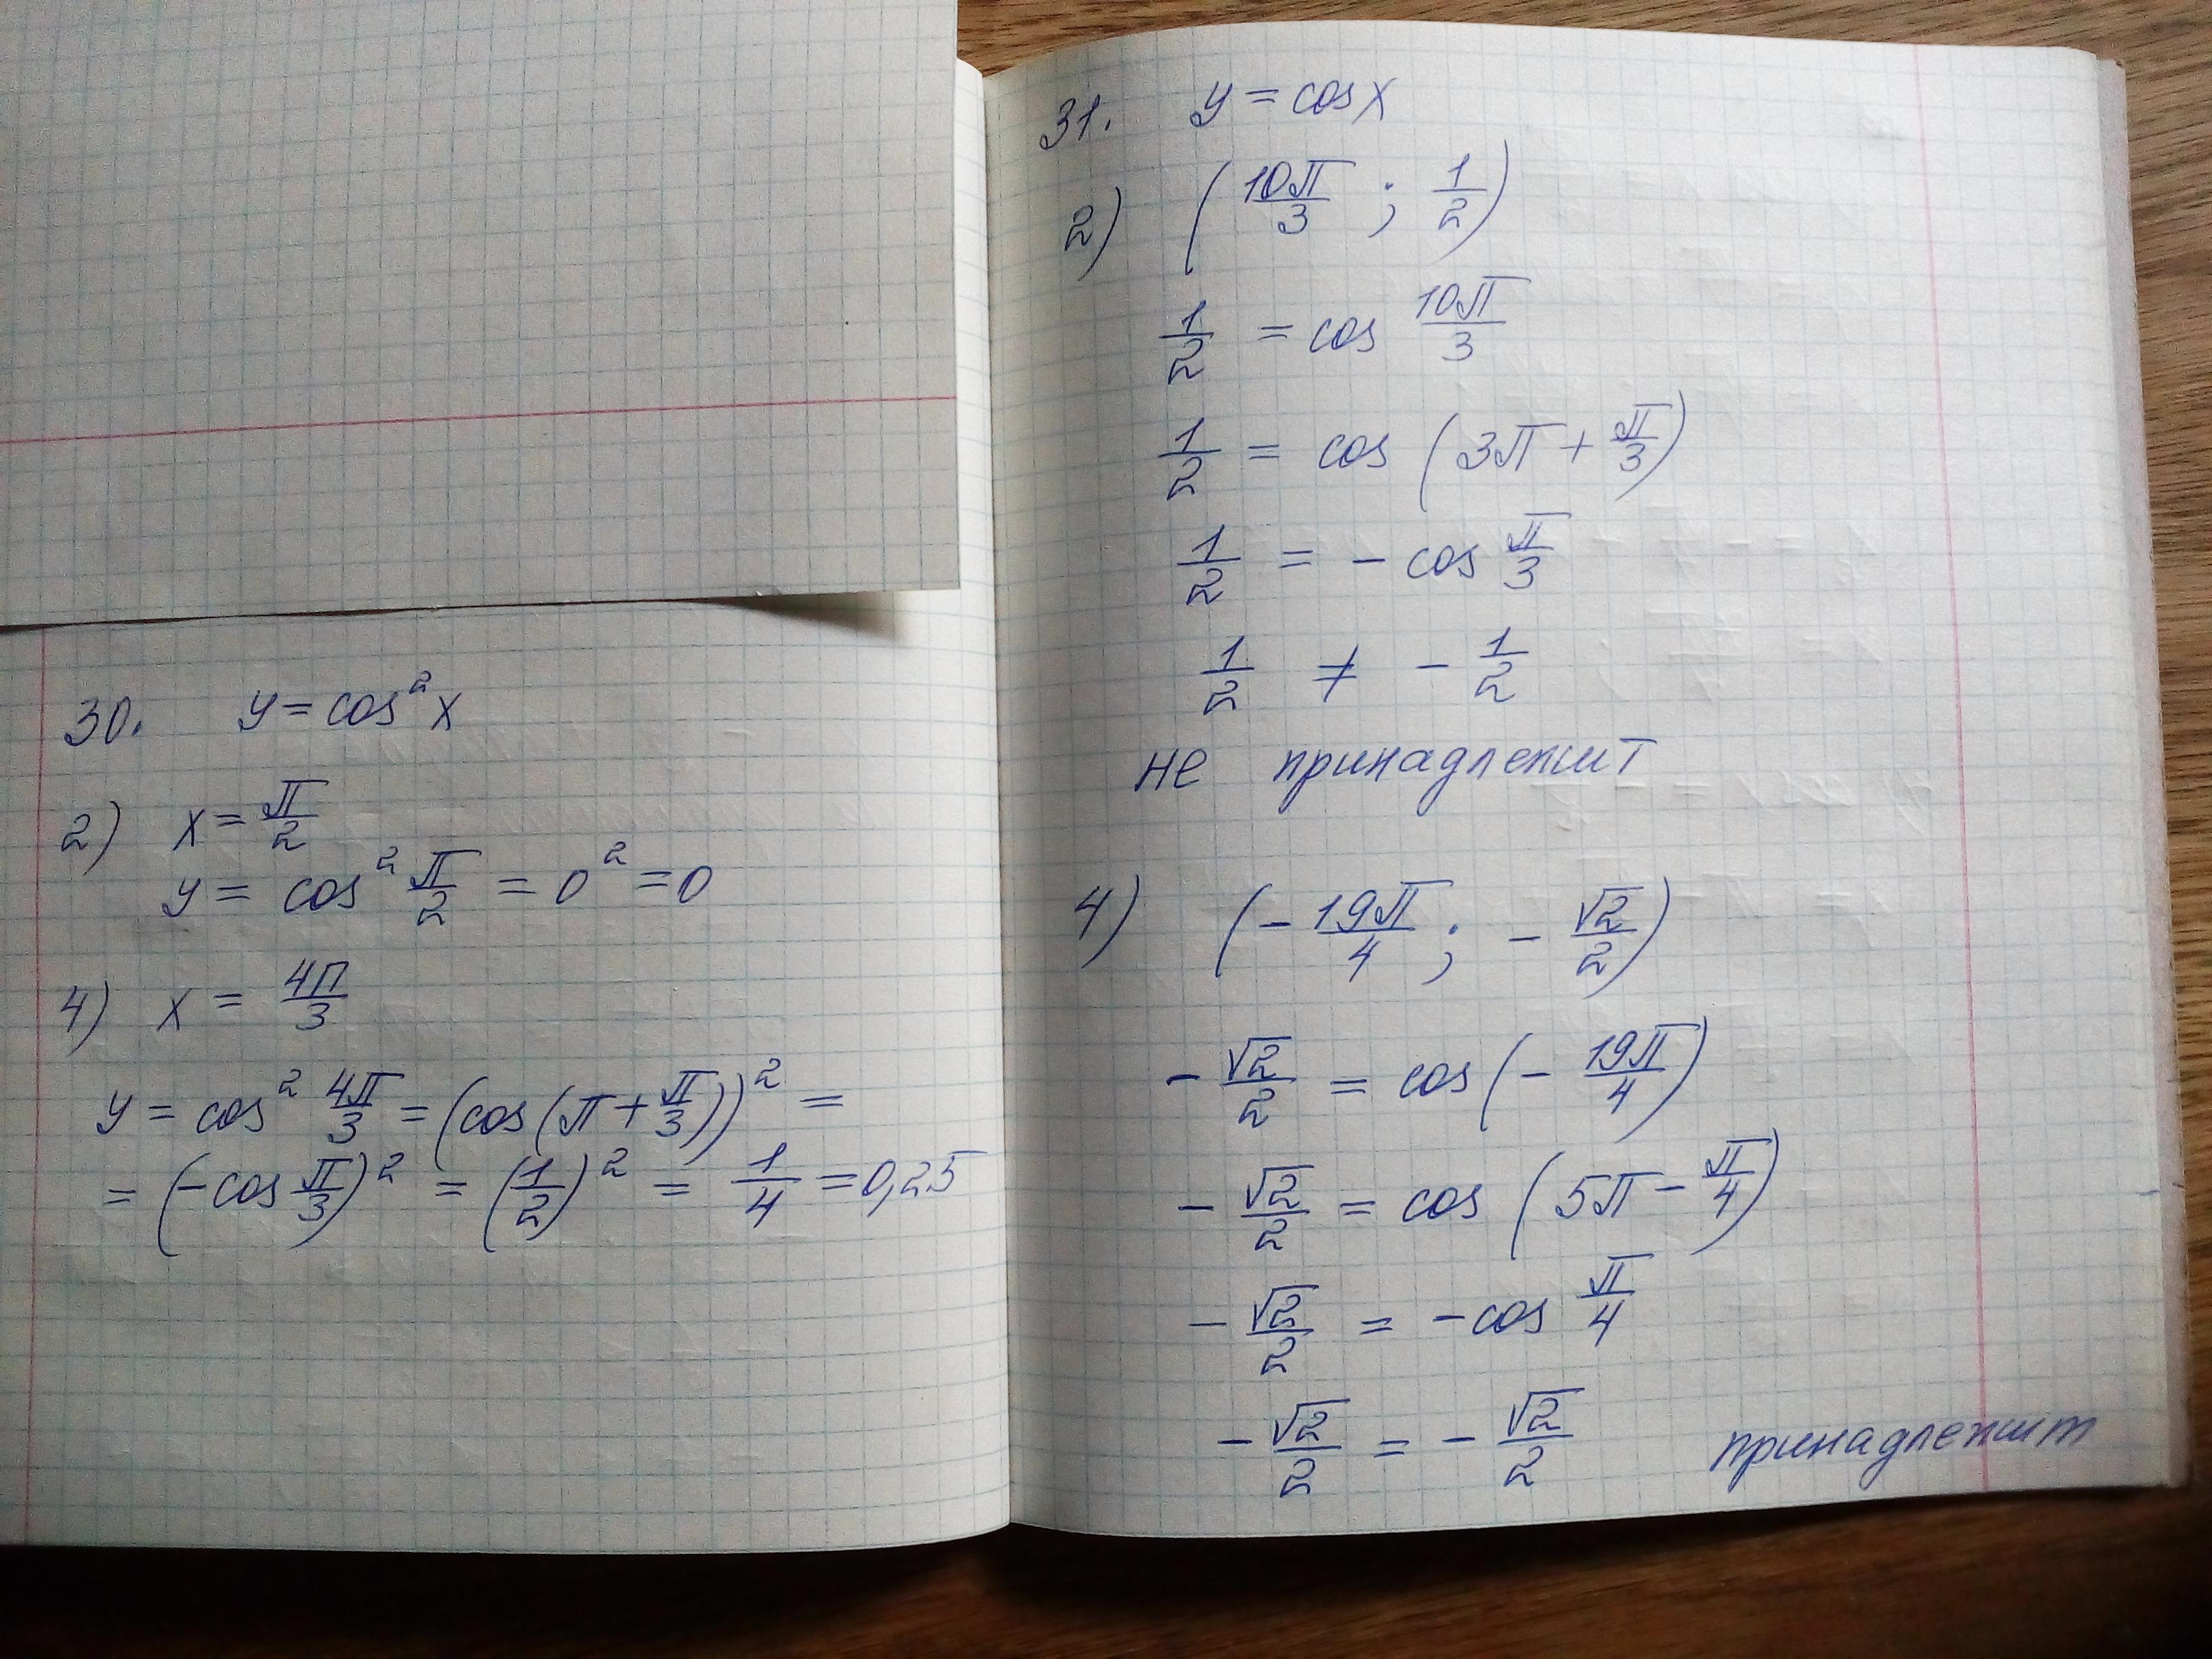 30. y = cos² x
2) x = π/2
y = cos² π/2 = 0² = 0
4) x = 4π/3
y = cos² 4π/3 = (cos(π + π/3))² =
= (-cos π/3)² = (1/2)² = 1/4 = 0,25
31. y = cos x
2) (10π/3 ; 1/2)
1/2 = cos 10π/3
1/2 = cos (3π + π/3)
1/2 = - cos π/3
1/2 ≠ - 1/2
не принадлежит
4) (- 19π/4 ; - √2/2)
- √2/2 = cos (- 19π/4)
- √2/2 = cos (5π - π/4)
- √2/2 = - cos π/4
- √2/2 = - √2/2 принадлежит